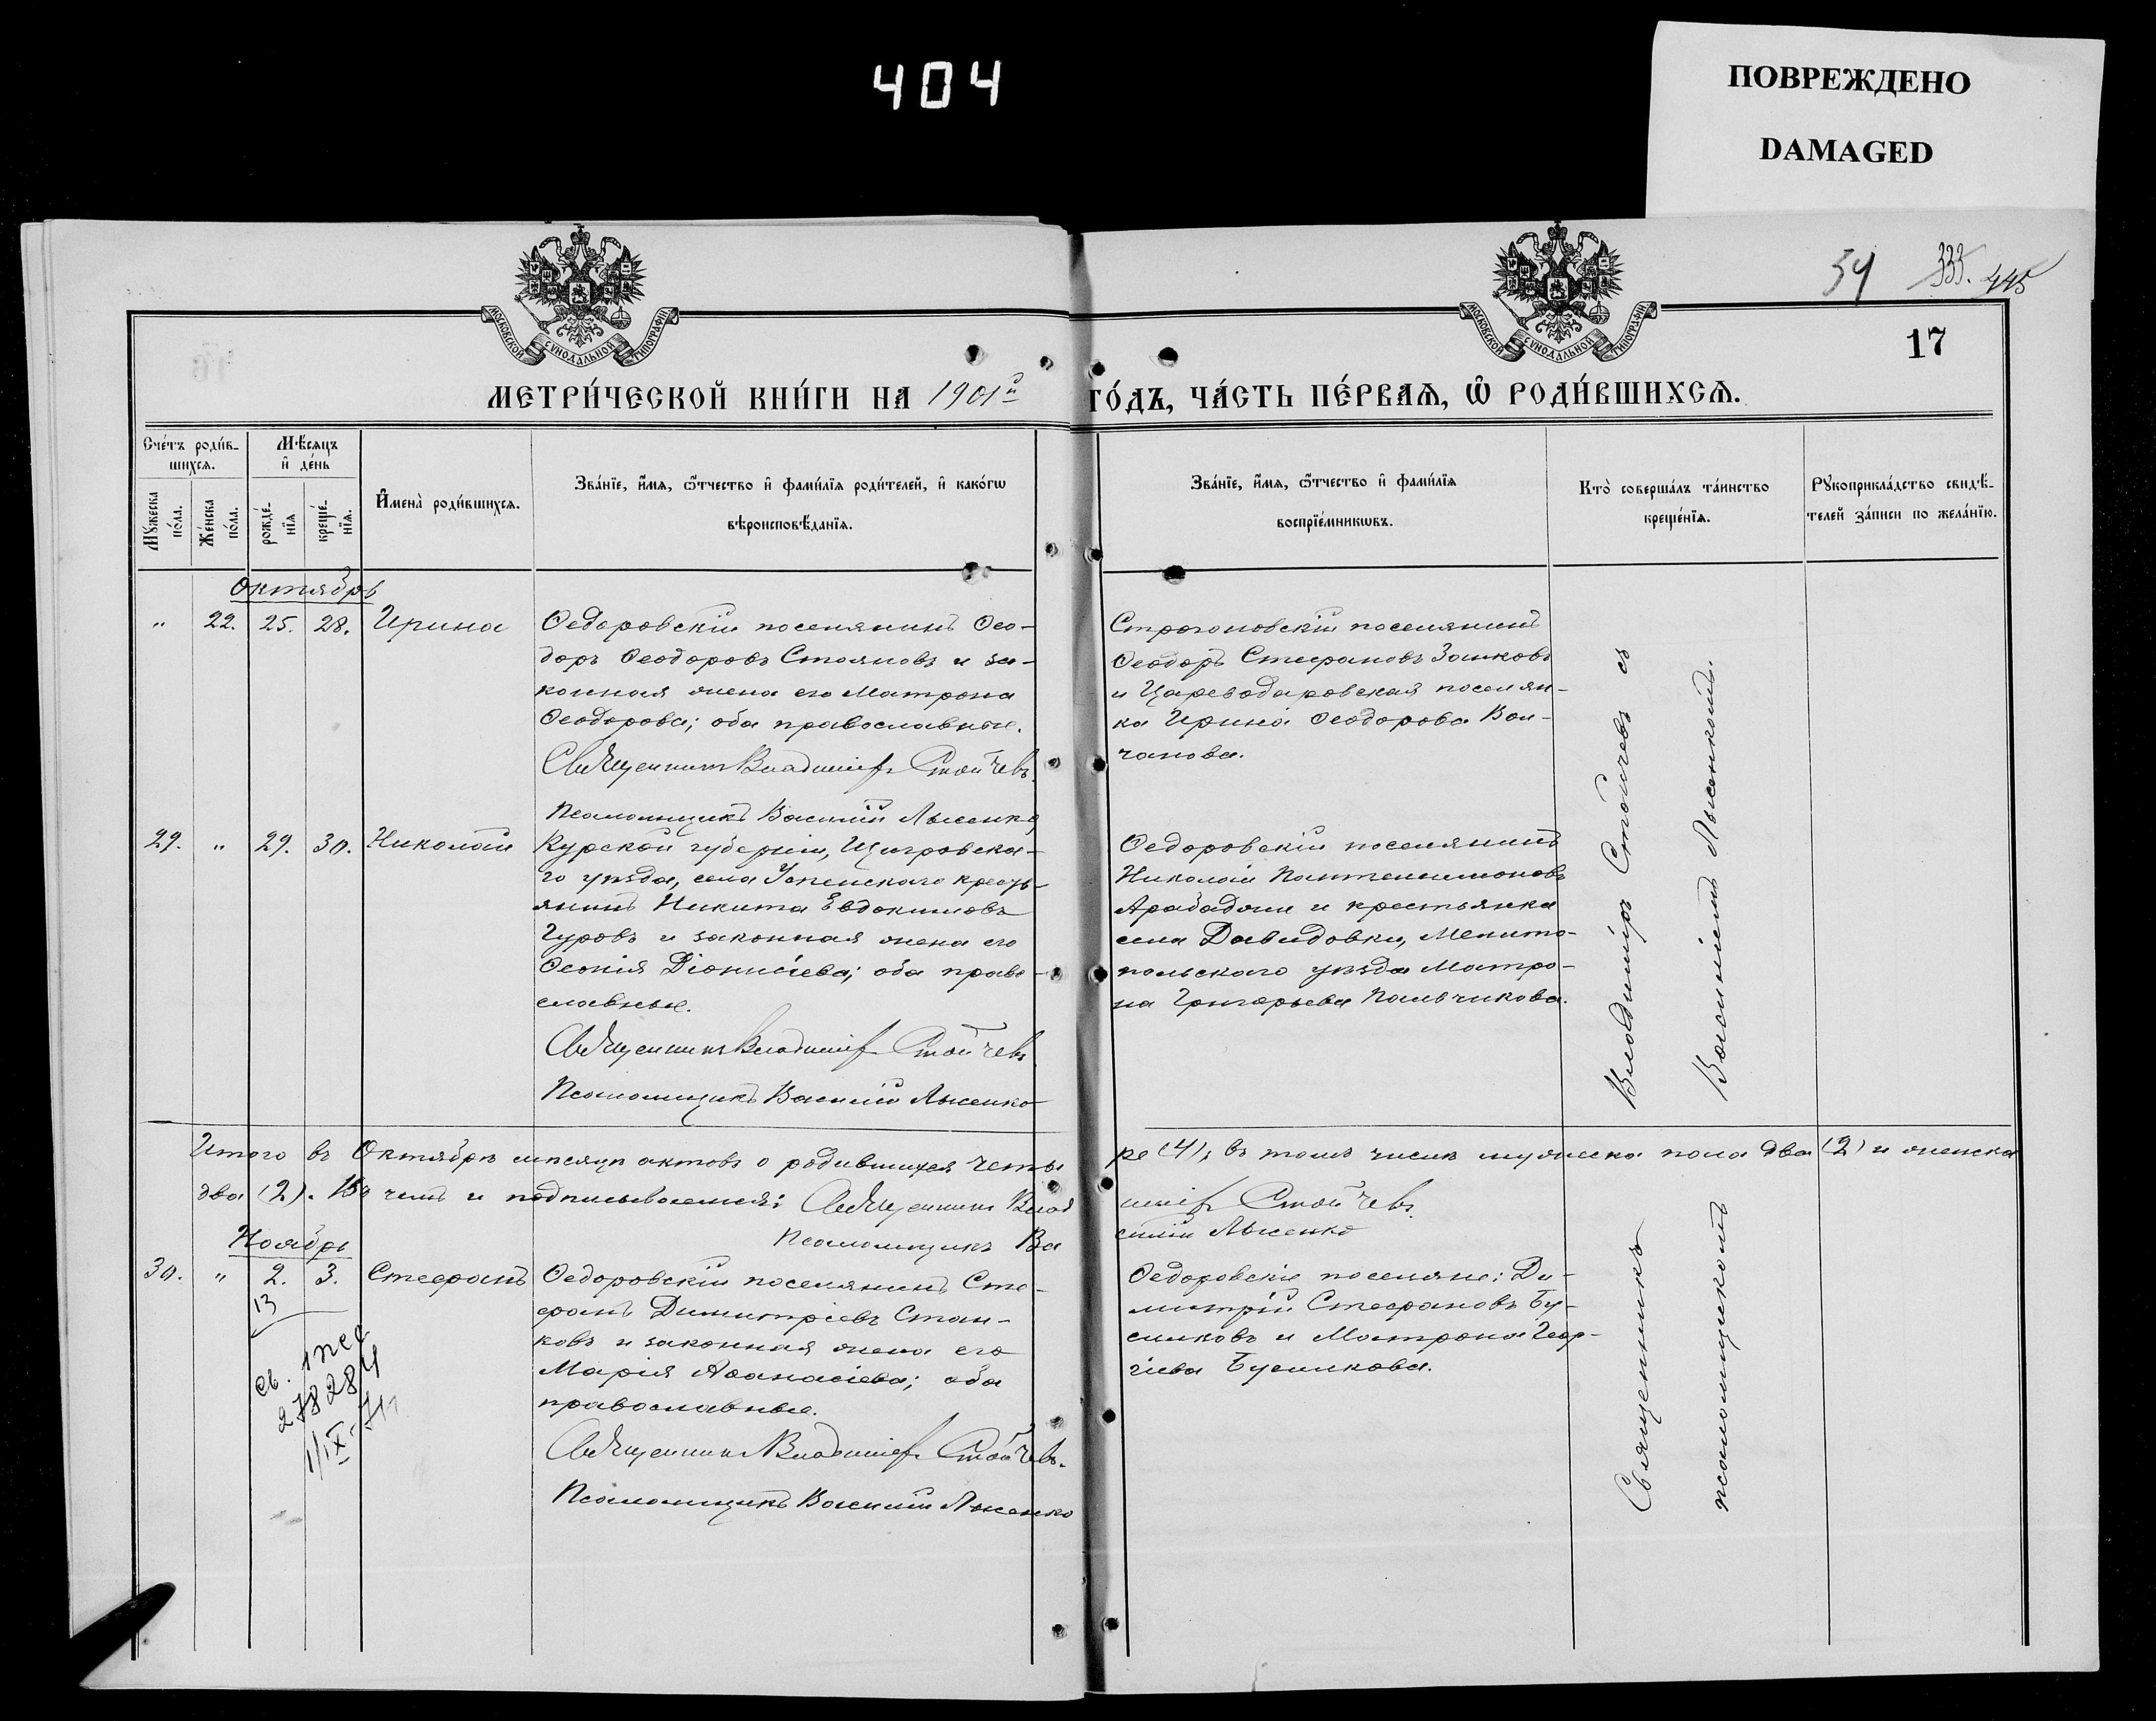 404
ПОВРЕЖДЕНО
DAMAGED
54 335. 445
МОСКОВСКОЙ СѴНОДАЛЬНОЙ ТИПОГРАФІИ
МОСКОВСКОЙ СѴНОДАЛЬНОЙ ТИПОГРАФІИ
17
МЕТРИ́ЧЕСКОЙ КНИ́ГИ НА 1901й ГО́ДЪ, ЧА́СТЬ ПЕ́РВАѦ, Ѿ РОДИ́ВШИХСѦ.
Сче́тъ роди́в-
шихсѧ.
Мꙋжеска по́ла.
Же́нска по́ла.
Мѣ́сѧцъ
и҆ де́нь
рожде́-
нїѧ
креще́-
нїѧ.
И҆мена̀ роди́вшихсѧ.
Зва́нїе, и҆́мѧ, ѻ҆́тчество и҆ фами́лїѧ роди́телей, и҆ како́гѡ
вѣроисповѣ́данїѧ.
Зва́нїе, и҆́мѧ, ѻ҆́тчество и҆ фами́лїѧ
воспрїе́мникѡвъ.
Кто̀ соверша́лъ та́инство
креще́нїѧ.
Рꙋкоприкла́дство свидѣ́-
телей за́писи по жела́нїю.
Октябрь
" 22. 25. 28. Ирина
Ѳедоровскій поселянинъ Ѳео-
доръ Ѳеодоровъ Стояновъ и за-
конная жена его Матрона
Ѳеодорова; оба православные.
Священникъ Владиміръ Стойчевъ.
Псаломщикъ Василій Лысенко
Строгоновскій поселянинъ
Ѳеодоръ Стефановъ Зайковъ
и Цареводаровская поселян-
ка Ирина Ѳеодорова Вол-
чанова.
29. " 29. 30. Николай
Курской губерніи, Щигровска-
го уѣзда, села Успенскаго кресть-
янинъ Никита Евдокимовъ
Гуровъ и законная жена его
Ѳеонія Діонисіева; оба право-
славные.
Священникъ Владиміръ Стойчевъ
Псаломщикъ Василій Лысенко
Ѳедоровскій поселянинъ
Николай Пантелеимоновъ
Арабаджи и крестьянка
села Давидовки, Мелито-
польскаго уѣзда Матро-
на Григорьева Пальчикова.
Итого въ Октябрѣ мѣсяцѣ актовъ о родившихся четыре (4), въ томъ числѣ мужеска пола два (2) и женска
два (2). Въ чемъ и подписываемся: Священникъ Владиміръ Стойчевъ.
Псаломщикъ Василій Лысенко
Ноябрь
30. " 2. 3. Стефанъ
13
св.
27828
Ѳедоровскій поселянинъ Сте-
фанъ Димитріевъ Стан-
ковъ и законная жена его
Марія Аѳанасіева; оба
православные.
Священникъ Владиміръ Стойчевъ.
Псаломщикъ Василій Лысенко
Ѳедоровскіе поселяне: Ди-
митрій Стефановъ Бу-
силковъ и Матрона Геор-
гіева Бусилкова.
Священникъ Владиміръ Стойчевъ съ
псаломщикомъ Василіемъ Лысенкомъ.